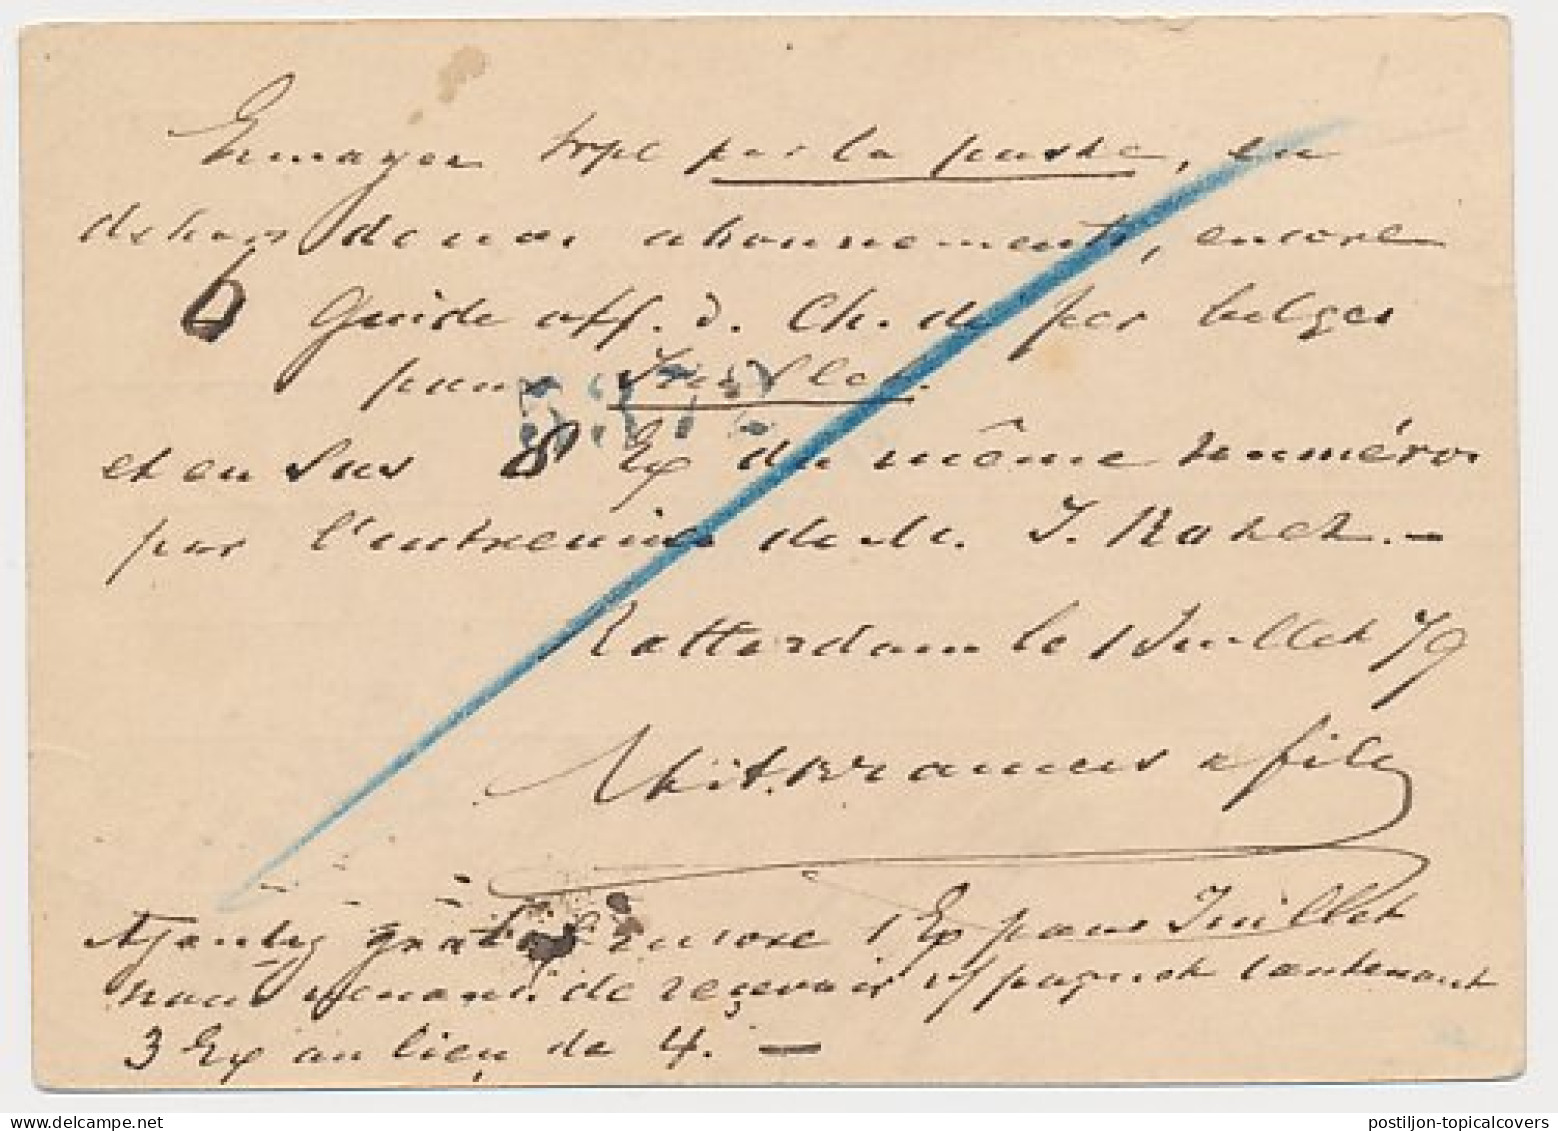 Envoyez svpl par la poste, en
dehors de nos abonnements, encore
6 Guide off. d. Ch. de fer belges
pour Juillet.
et en sus 8 Ex du même numéro
par l'entremise de M. J. Rozez. —
Rotterdam le 1 Juillet 79
Nijgh & fils
Ajoutez gratis encore 1 Ex pour Juillet
nous venons de reçevoir v/ paquet contenant
3 Ex au lieu de 4. —
postiljon-topicalcovers